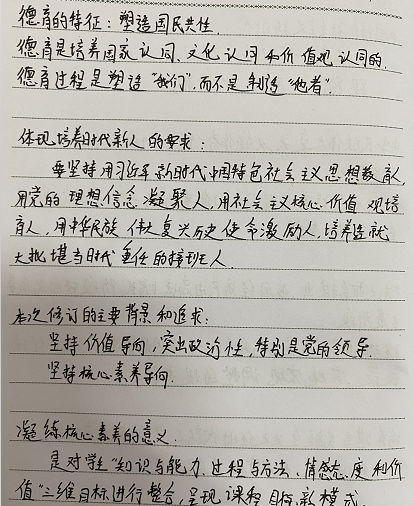 德育的特征：塑造国民共性.
德育是培养国家认同、文化认同和价值观认同的.
德育过程是塑造"我们"，而不是制造"他者".
体现培养时代新人的要求：
要坚持用习近平新时代中国特色社会主义思想教育人,
用党的理想信念凝聚人，用社会主义核心价值观培
育人，用中华民族伟大复兴历史使命激励人，培养造就
大批堪当时代重任的接班人.
本次修订的主要背景和追求：
坚持价值导向，突出政治性，特别是党的领导.
坚持核心素养导向.
凝练核心素养的意义.
是对学生"知识与能力、过程与方法、情感态度和价
值"三维目标进行整合，呈现课程目标新模式.